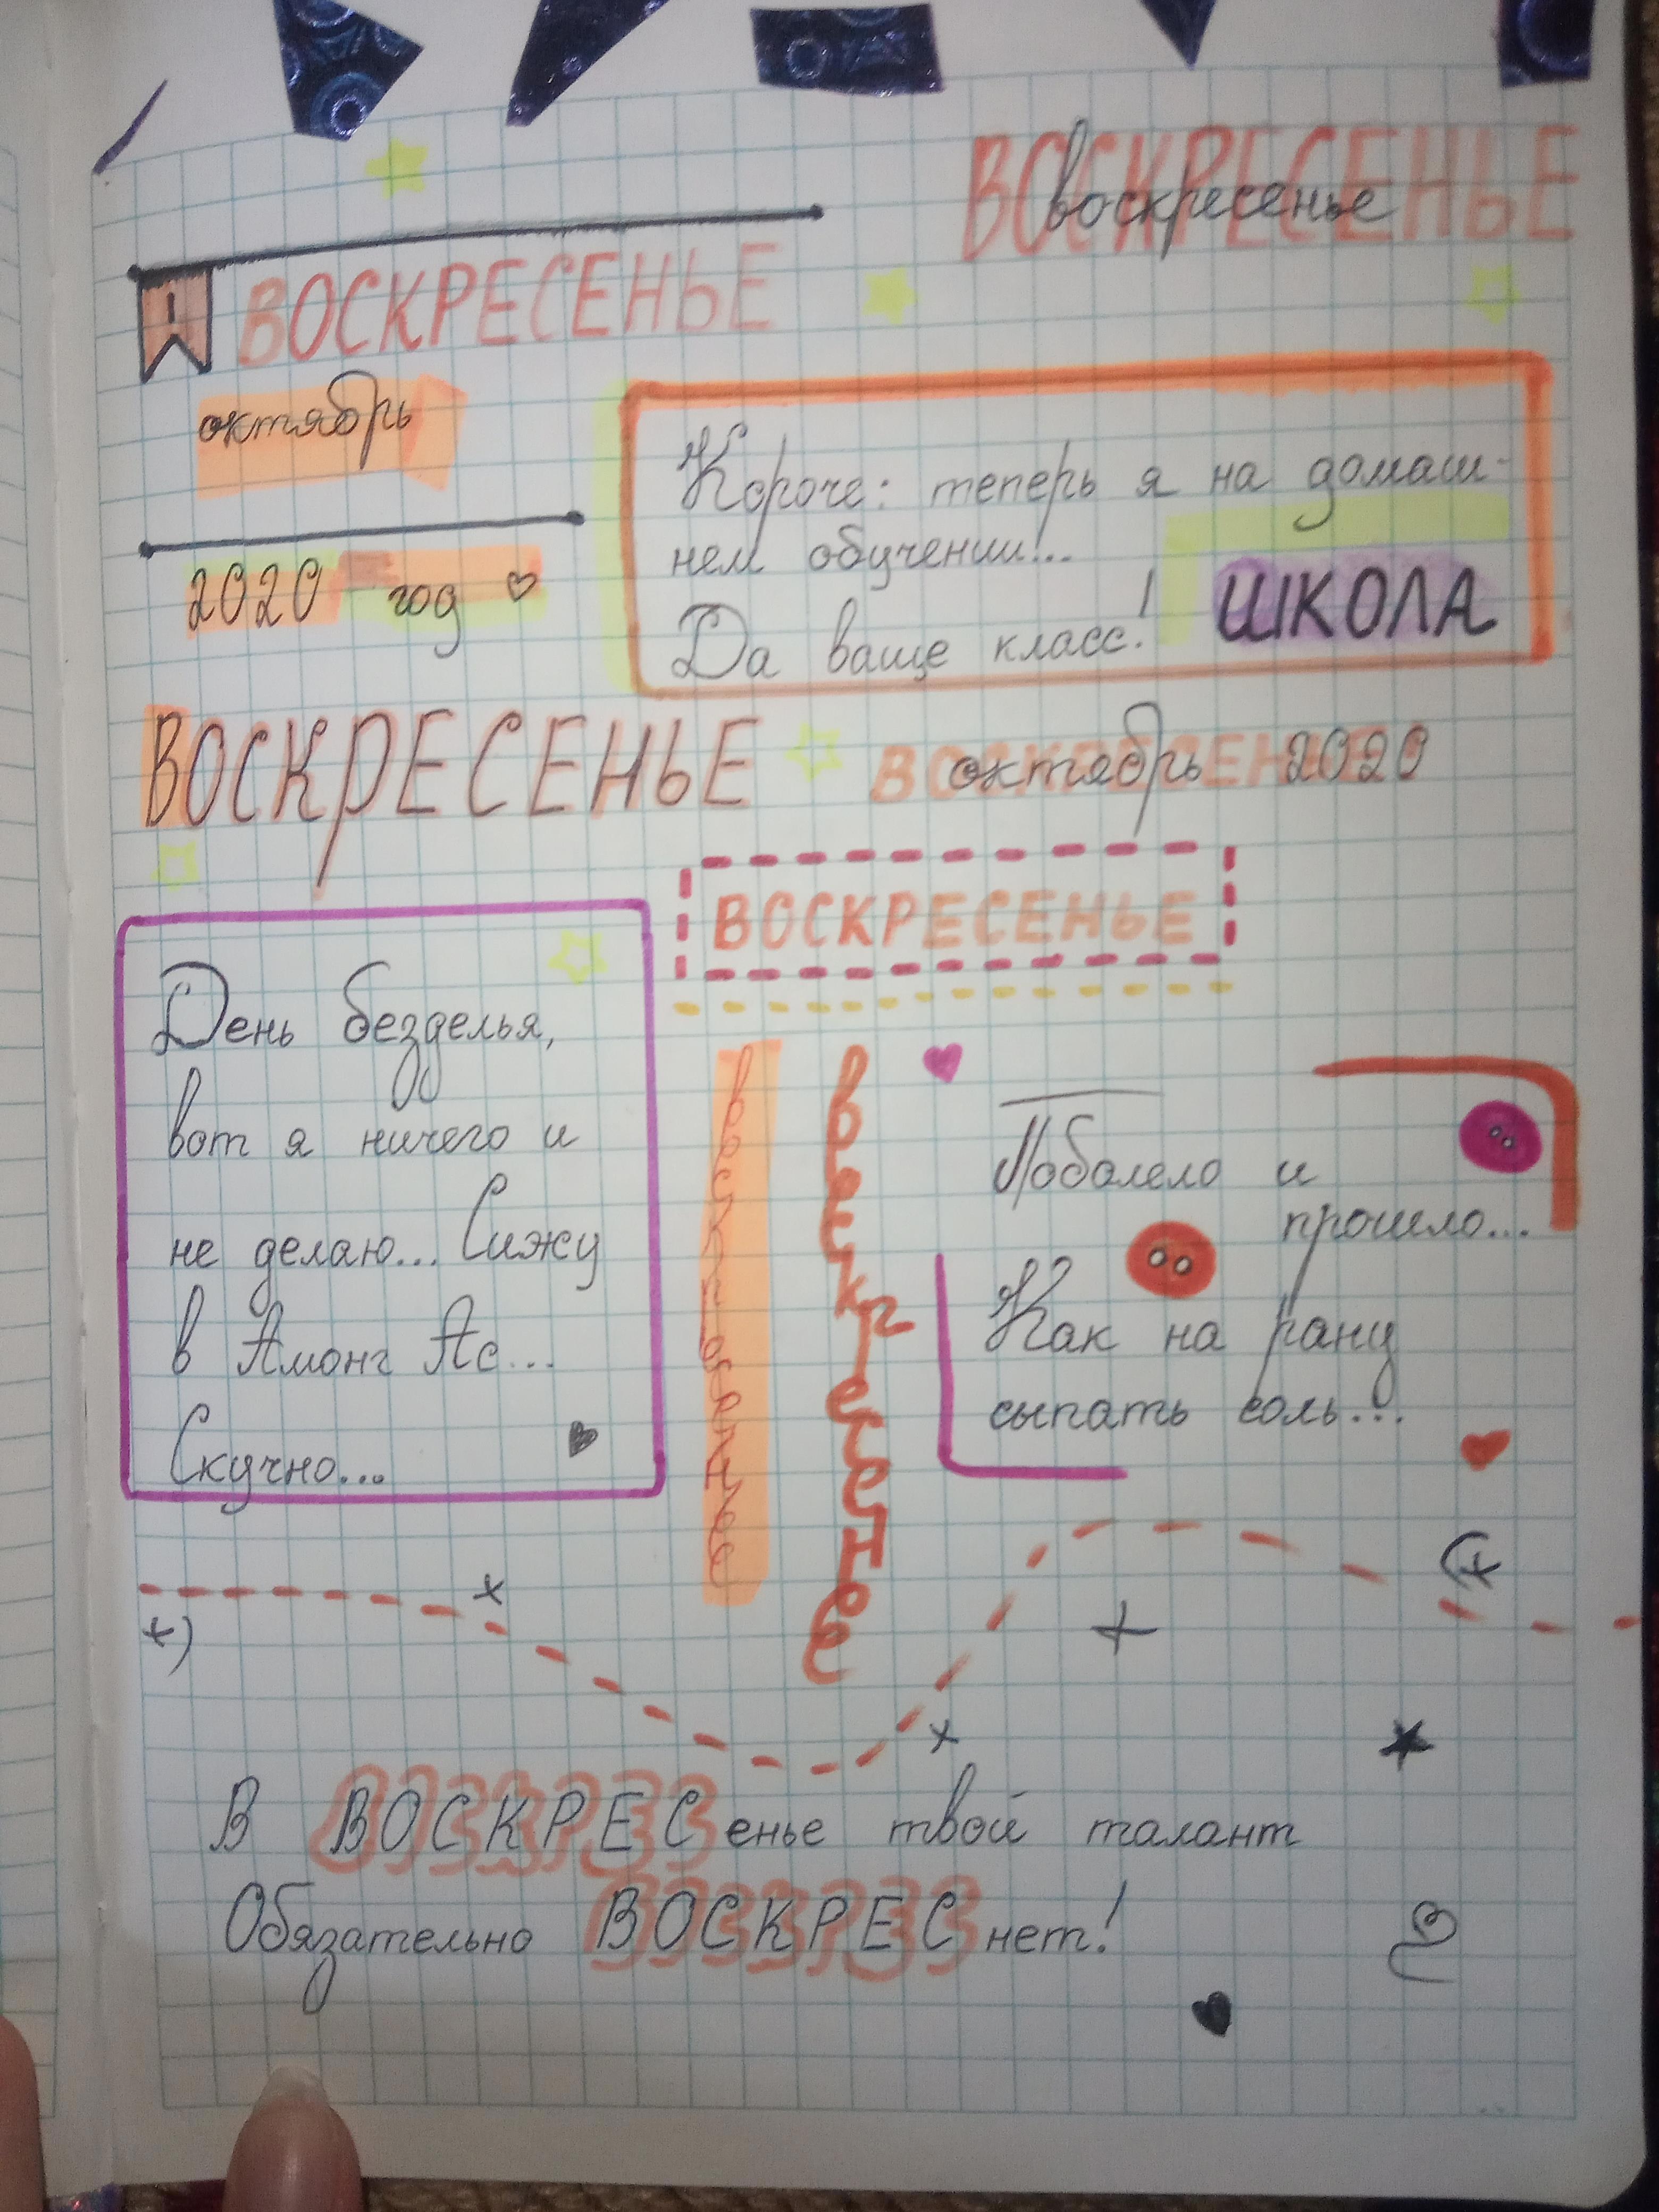 ВОСКРЕСЕНЬЕ
воскресенье
1 ВОСКРЕСЕНЬЕ
октябрь
2020 год
Короче: теперь я на домаш-
нем обучении!..
Да ваще класс!
ШКОЛА
ВОСКРЕСЕНЬЕ
ВОСКРЕСЕНЬЕ
октябрь 2020
ВОСКРЕСЕНЬЕ
День безделья,
вот я ничего и
не делаю... Сижу
в Амонг Ас...
Скучно...
воскресенье
воскресенье
Поболело и
прошло...
Как на рану
сыпать соль...
В ВОСКРЕСенье твой талант
Обязательно ВОСКРЕСнет!